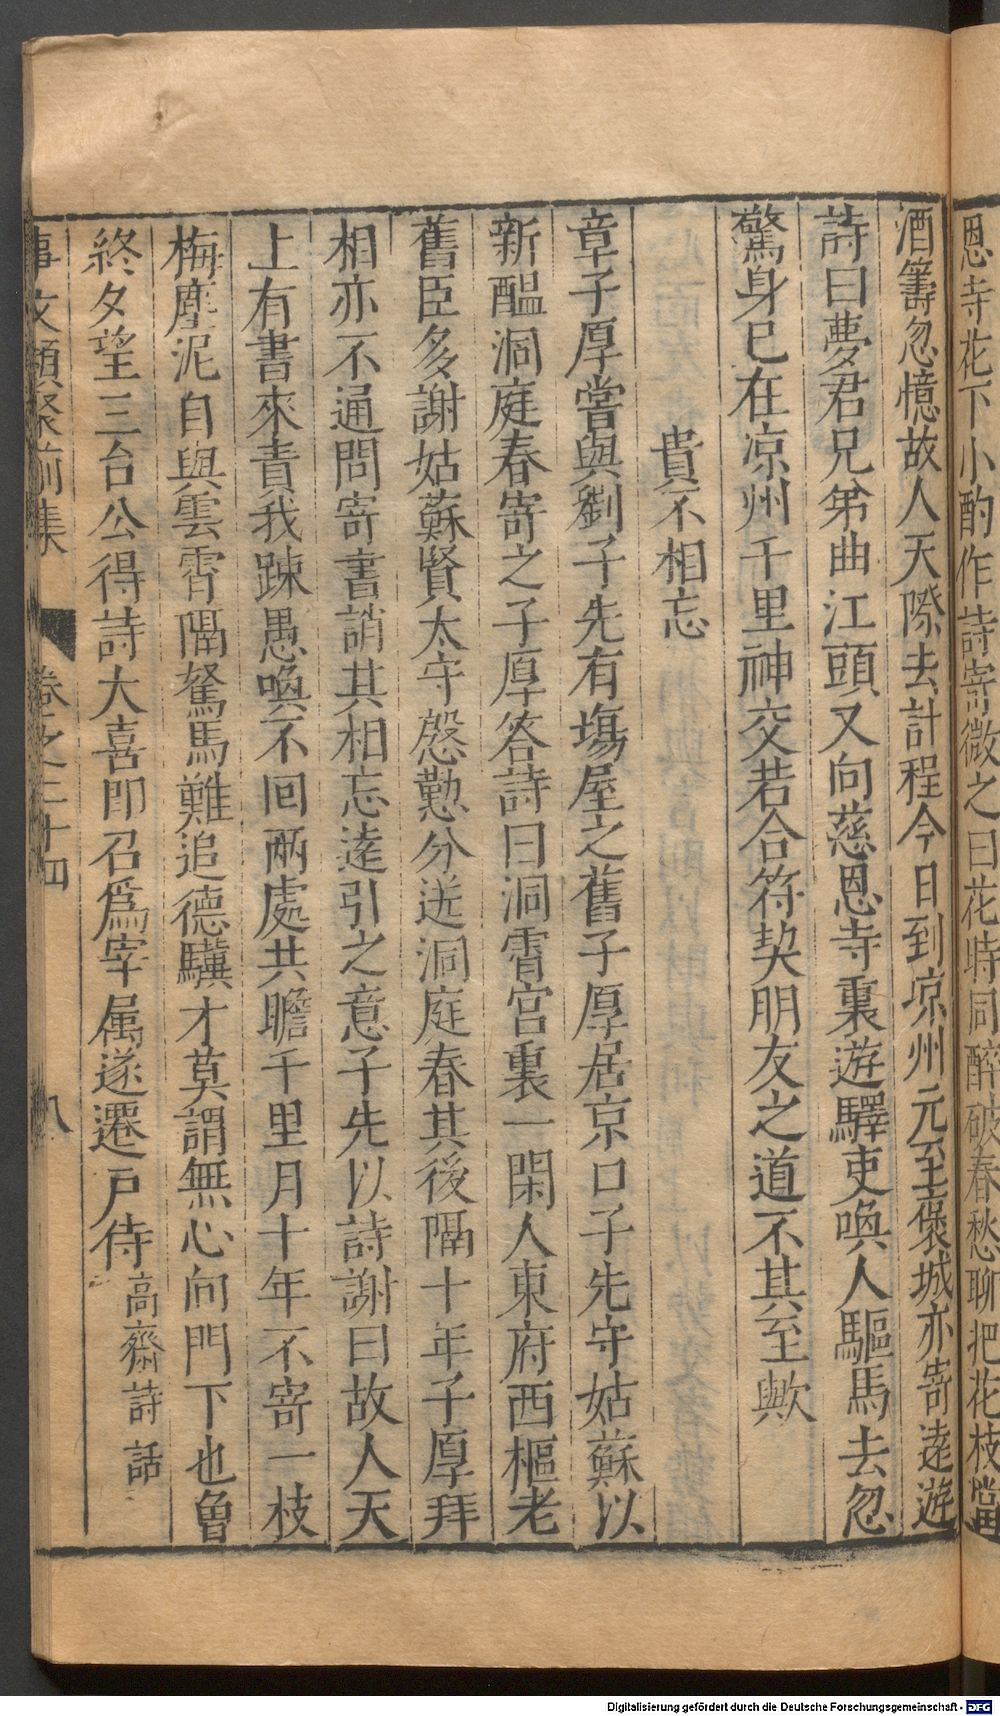 恩寺花下小酌作詩寄微之曰花時同醉破春愁聊把花枝當
酒籌忽憶故人天際去計程今日到凉州元至褒城亦寄逺遊
詩曰夢君兄弟曲江頭又向慈恩寺裏遊驛吏喚人驅馬去忽
驚身已在凉州千里神交若合符契朋友之道不其至歟
貴不相忘
章子厚嘗與劉子先有塲屋之舊子厚居京口子先守姑蘇以
新醖洞庭春寄之子厚答詩曰洞霄宫裏一閑人東府西樞老
舊臣多謝姑蘇賢太守慇懃分送洞庭春其後隔十年子厚拜
相亦不通問寄書誚其相忘逺引之意子先以詩謝曰故人天
上有書來責我踈愚喚不回兩處共瞻千里月十年不寄一枝
梅塵泥自與雲霄隔駑馬難追德驥才莫謂無心向門下也曾
終夕望三台公得詩大喜即召爲宰属遂遷戸侍 高齋詩話
事文類聚前集 卷之二十四 八
Digitalisierung gefördert durch die Deutsche Forschungsgemeinschaft - DFG